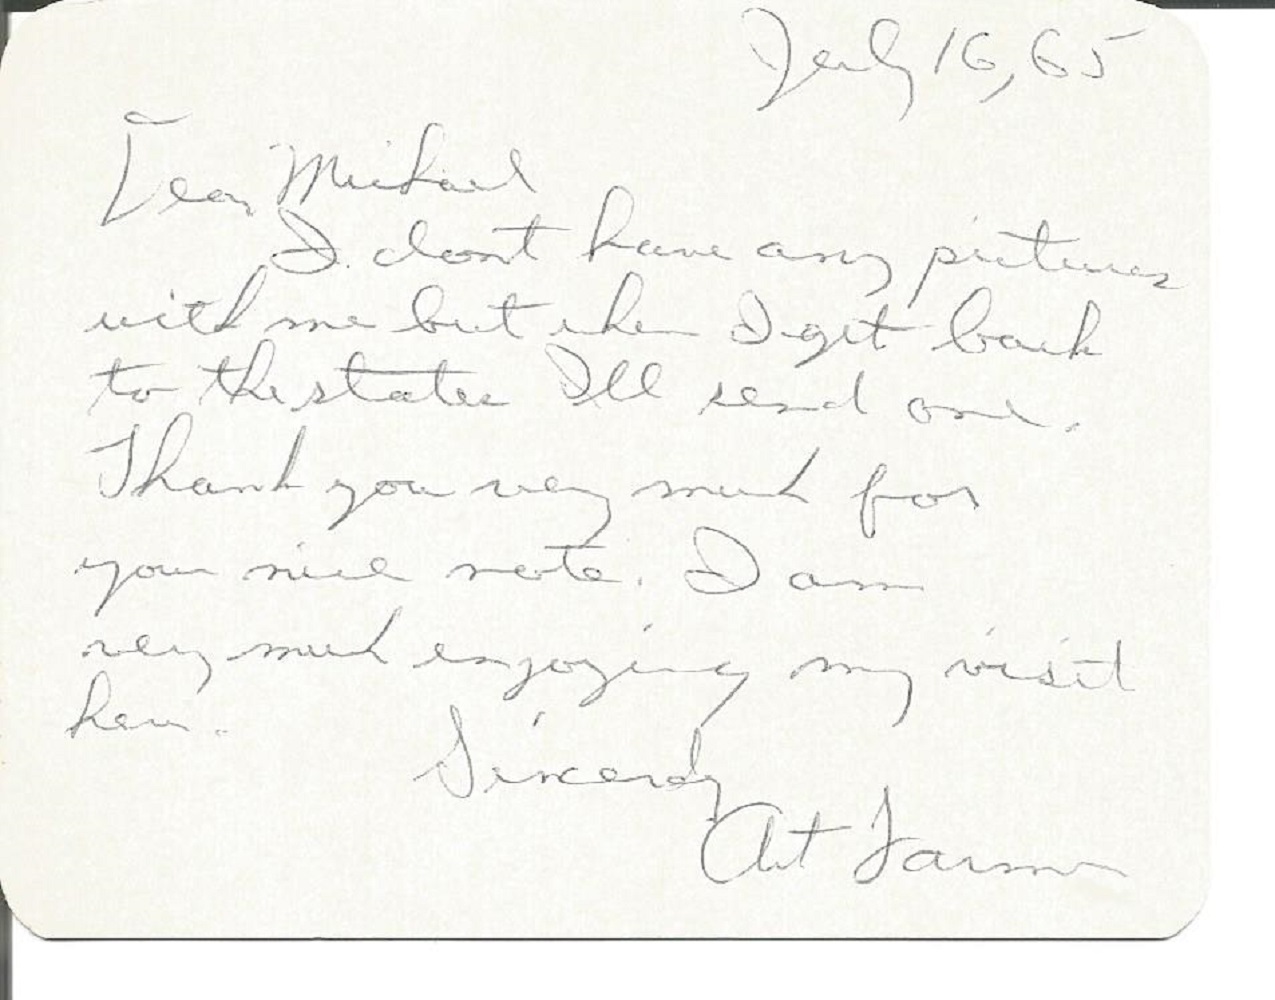 July 16, 65
Dear Michael
I dont have any pictures
with me but when I get back
to the states I'll send one.
Thank you very much for
your nice note. I am
very much enjoying my visit
here.
Sincerely
Art Farmer